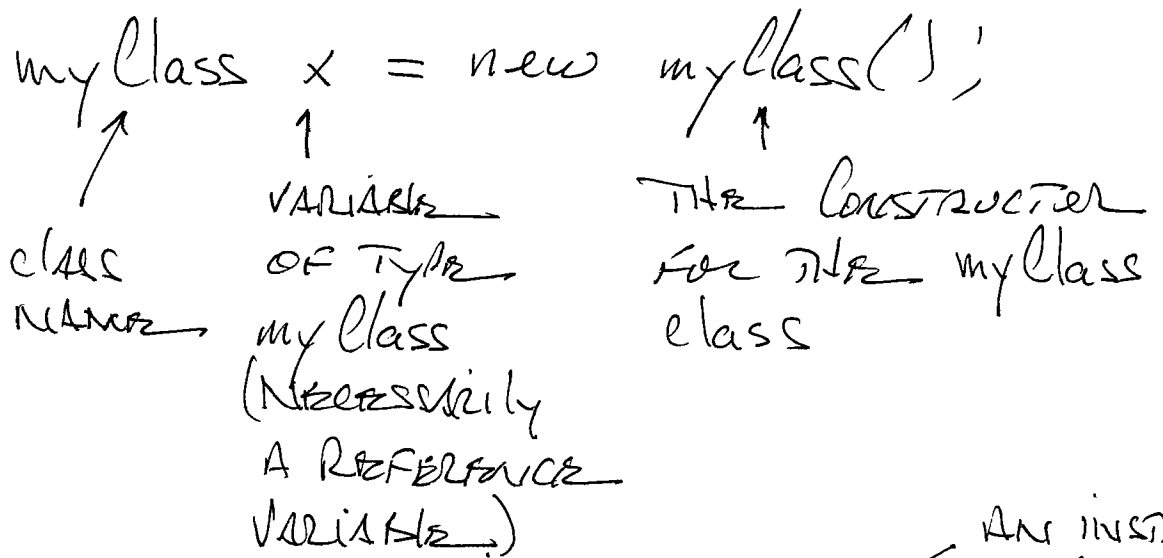 myClass x = new myClass();
class
name
variable
of type
myClass
(necessarily
a reference
variable.)
the constructor
for the myClass
class
an inst